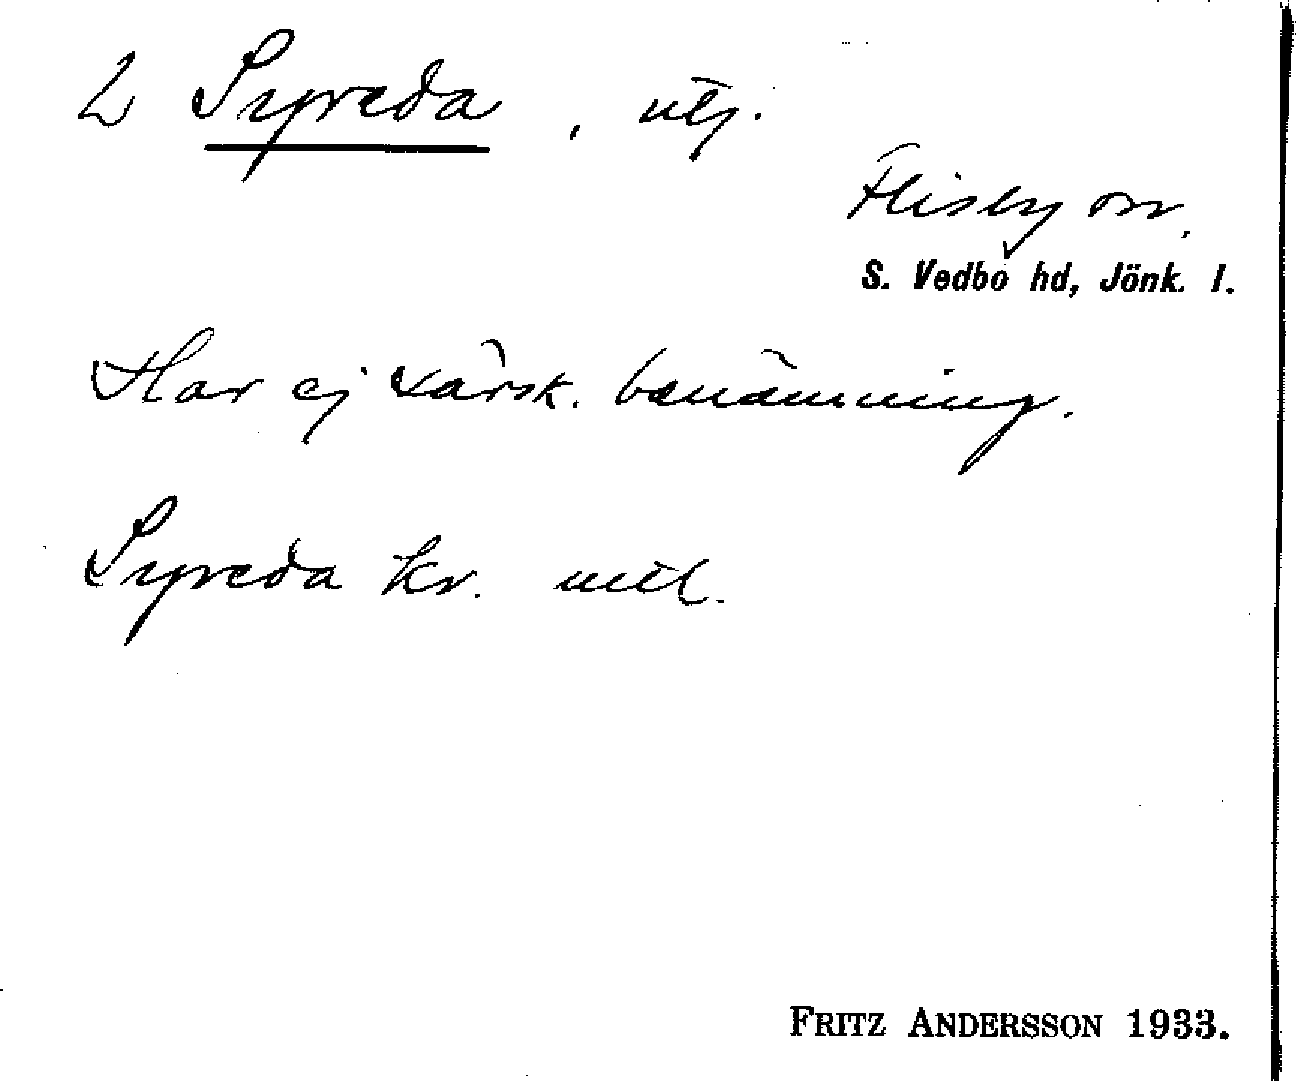 L Syreda, utj.
Flisby sn.
S. Vedbo hd, Jönk. l.
Har ej särsk. benämning.
Syreda kr. mtl.
FRITZ ANDERSSON 1933.